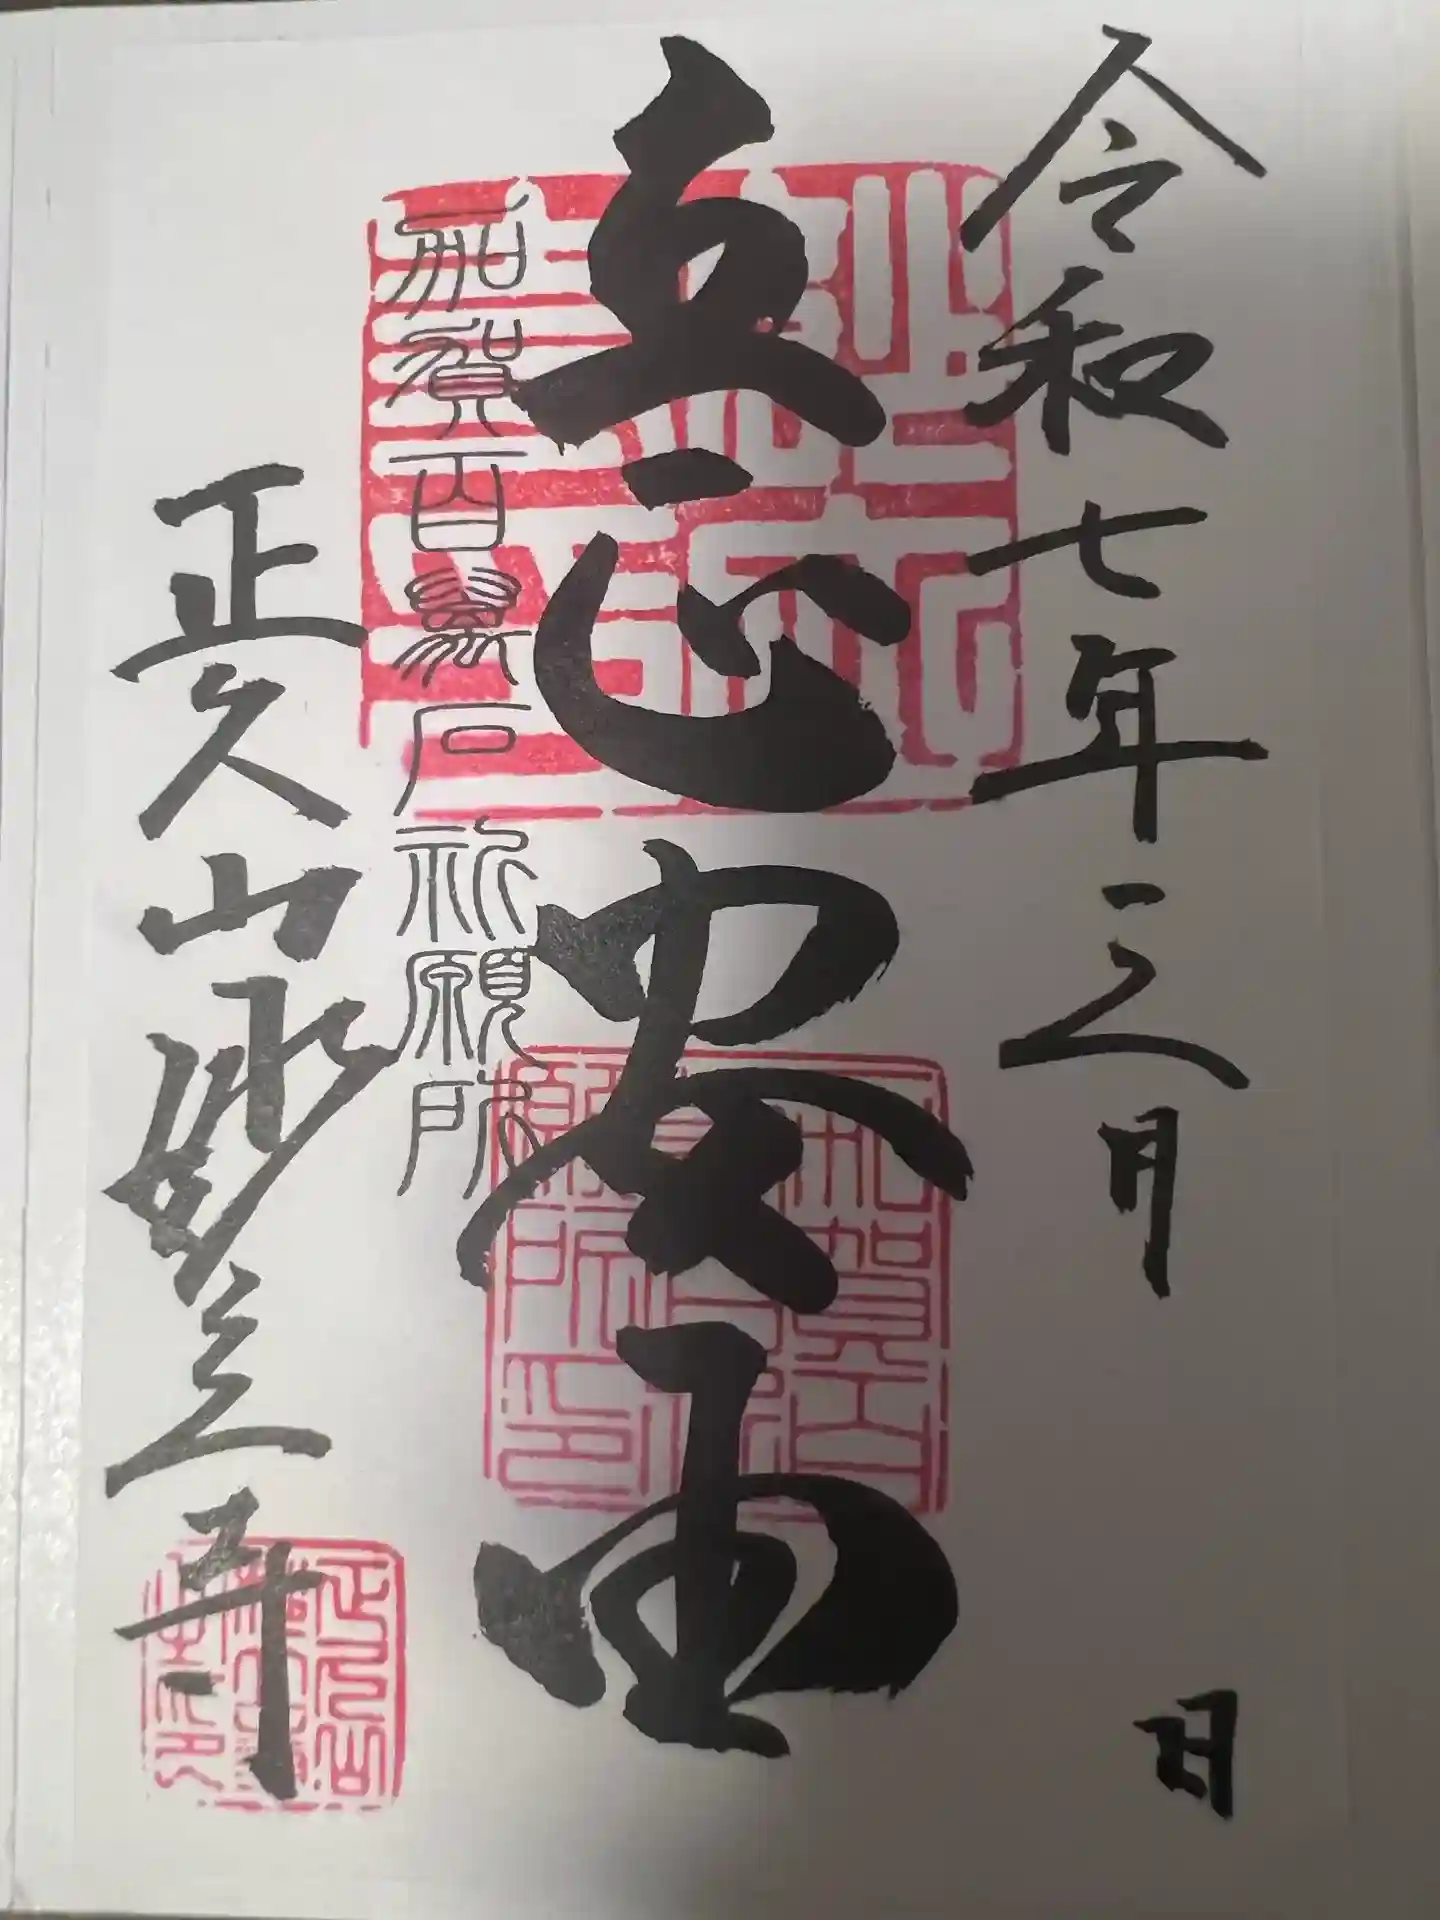 令和七年三月 日
立正安国
加賀百萬石祈願所
正久山妙立寺